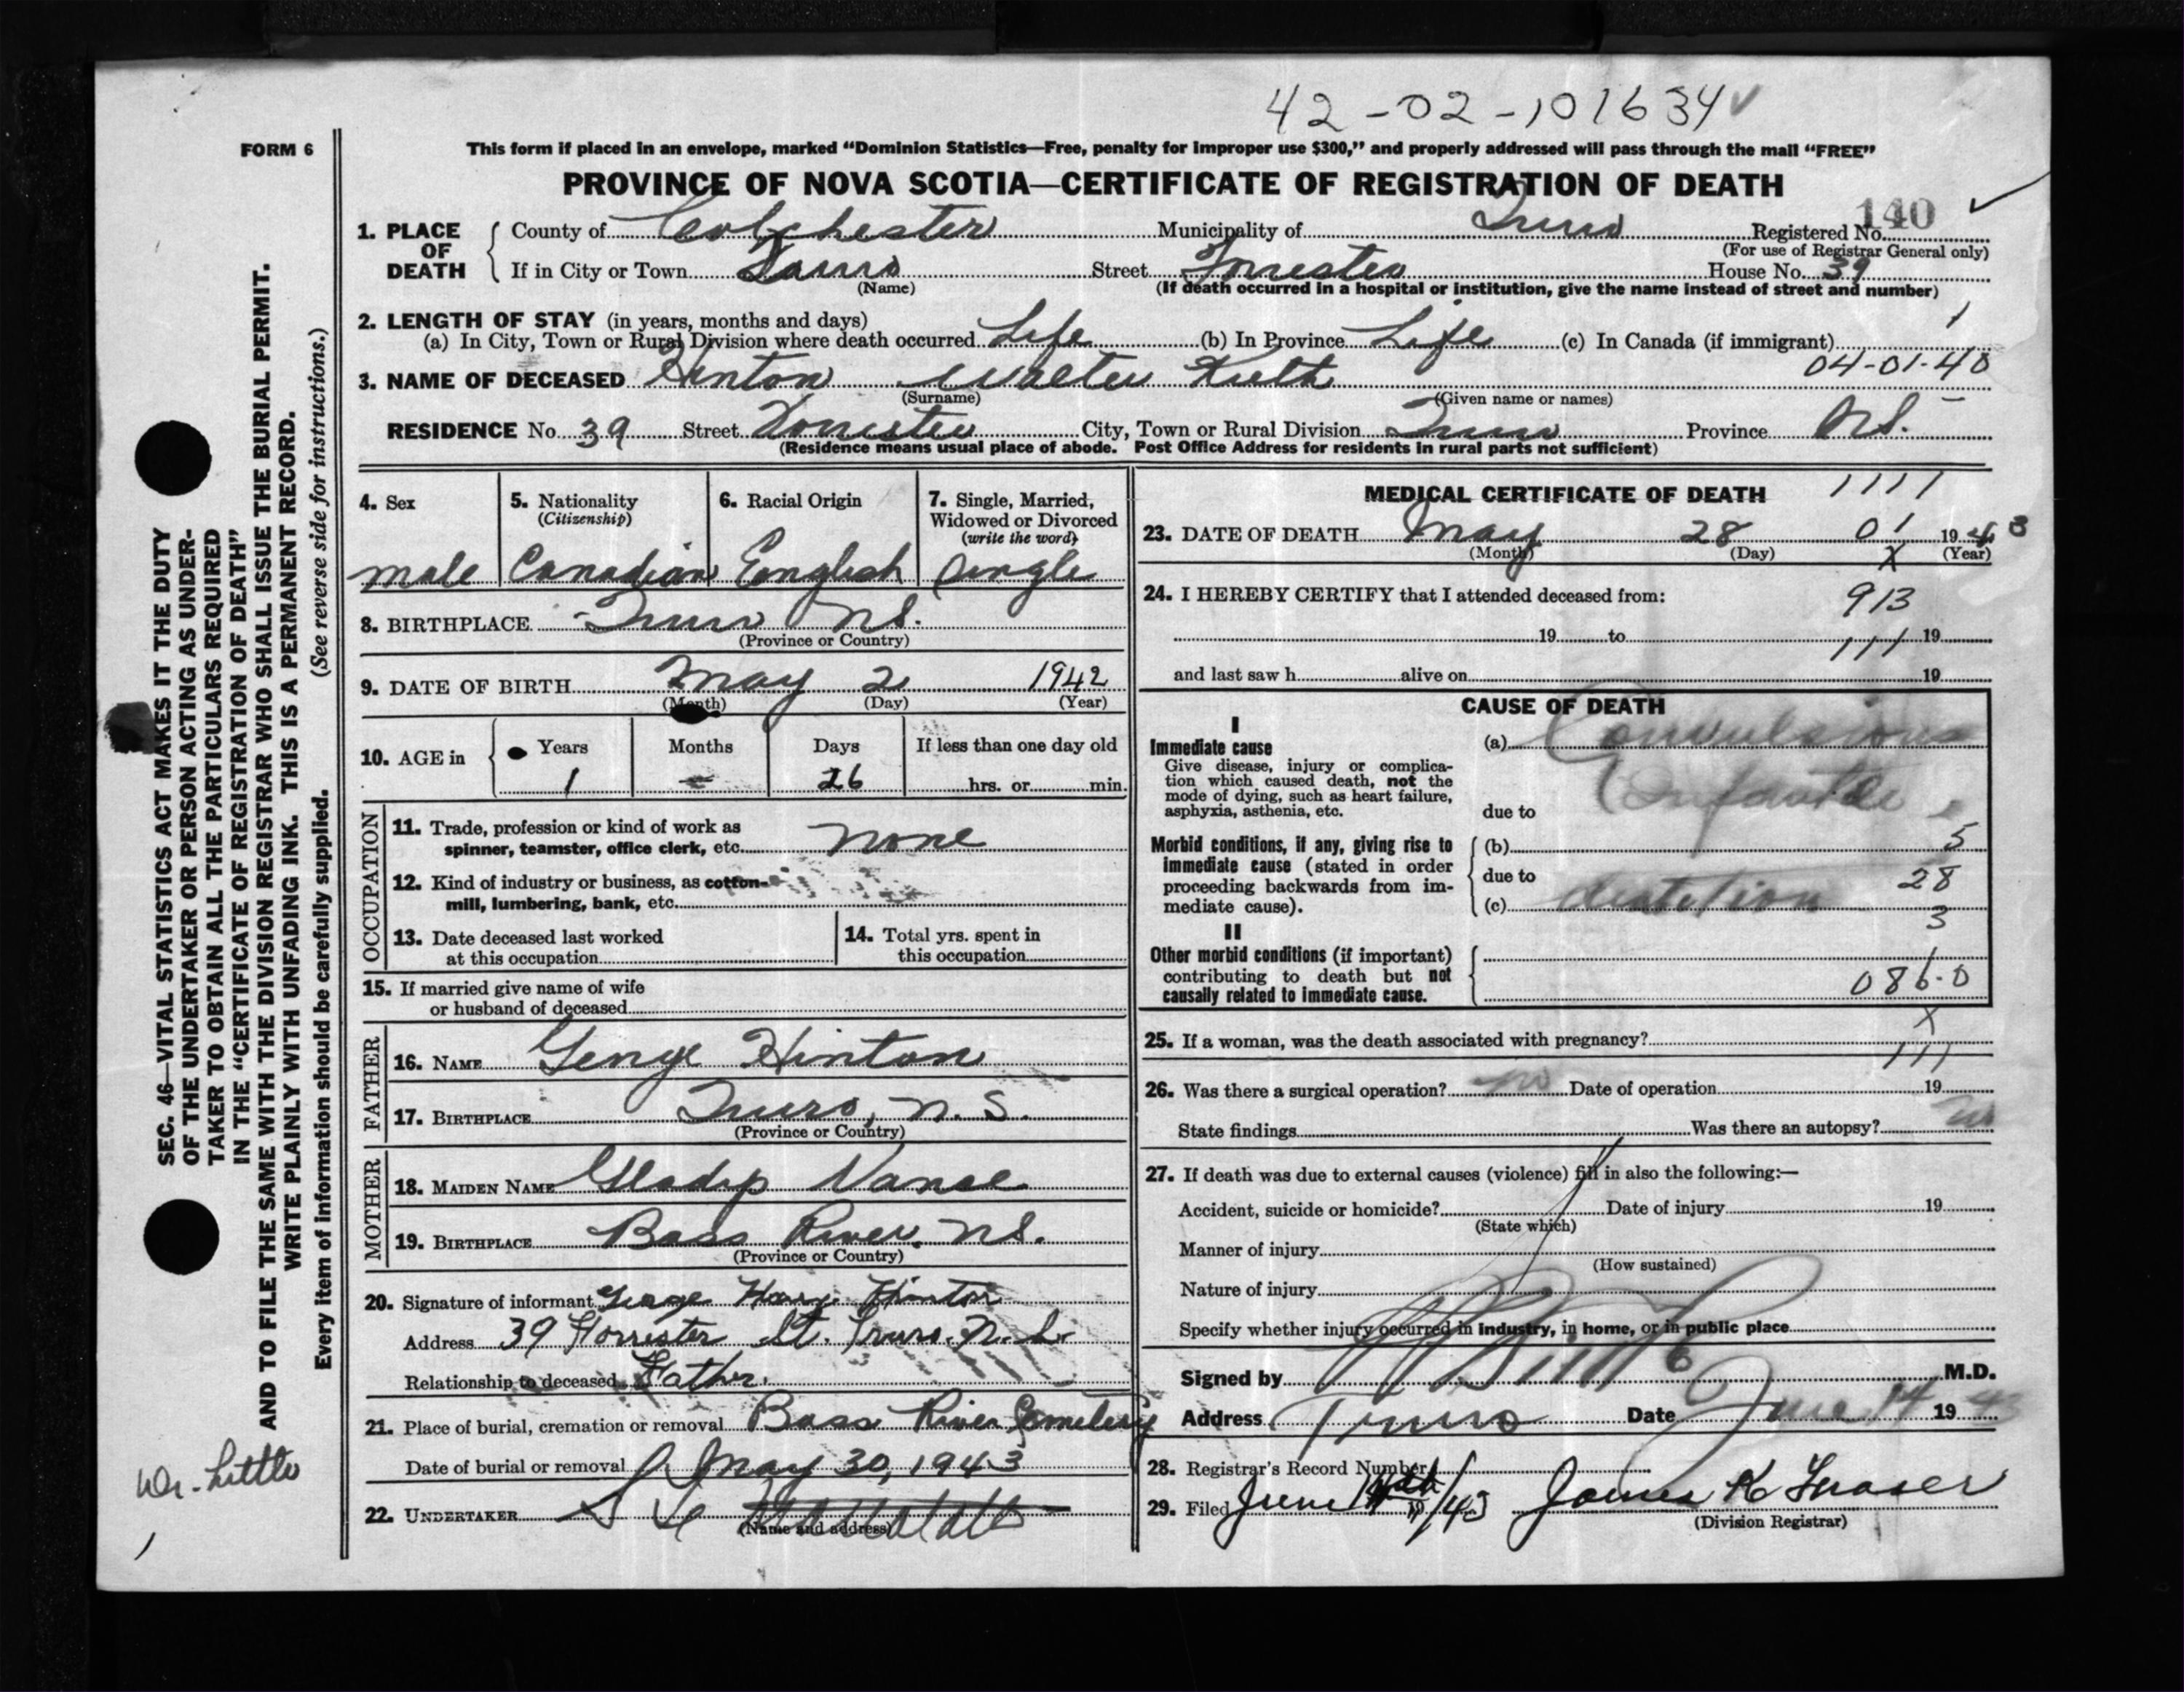 42-02-101634
FORM 6
This form if placed in an envelope, marked “Dominion Statistics—Free, penalty for improper use $300,” and properly addressed will pass through the mail “FREE”
PROVINCE OF NOVA SCOTIA—CERTIFICATE OF REGISTRATION OF DEATH
140
1. PLACE OF DEATH County of Colchester Municipality of Truro Registered No.
(For use of Registrar General only)
If in City or Town Truro Street Forrester House No. 39
(Name) (If death occurred in a hospital or institution, give the name instead of street and number)
2. LENGTH OF STAY (in years, months and days) 1
(a) In City, Town or Rural Division where death occurred Life (b) In Province Life (c) In Canada (if immigrant)
04-01-40
3. NAME OF DECEASED Hinton Walter Keith
(Surname) (Given name or names)
RESIDENCE No. 39 Street Forrester City, Town or Rural Division Truro Province N.S.
(Residence means usual place of abode. Post Office Address for residents in rural parts not sufficient)
4. Sex 5. Nationality (Citizenship) 6. Racial Origin 7. Single, Married, Widowed or Divorced (write the word)
male Canadian English single
8. BIRTHPLACE Truro N.S.
(Province or Country)
9. DATE OF BIRTH May 2 1942
(Month) (Day) (Year)
10. AGE in Years Months Days If less than one day old
1 - 26 hrs. or min.
OCCUPATION
11. Trade, profession or kind of work as
spinner, teamster, office clerk, etc. none
12. Kind of industry or business, as cotton-
mill, lumbering, bank, etc.
13. Date deceased last worked
at this occupation
14. Total yrs. spent in
this occupation
15. If married give name of wife
or husband of deceased
FATHER
16. NAME George Hinton
17. BIRTHPLACE Truro, N.S.
(Province or Country)
MOTHER
18. MAIDEN NAME Gladys Vance
19. BIRTHPLACE Bass River, N.S.
(Province or Country)
20. Signature of informant George Harry Hinton
Address 39 Forrester St. Truro. N.S.
Relationship to deceased Father.
21. Place of burial, cremation or removal Bass River Cemetery
Date of burial or removal May 30, 1943
22. UNDERTAKER
(Name and address)
MEDICAL CERTIFICATE OF DEATH 1111
23. DATE OF DEATH May 28 01 1943
(Month) (Day) X (Year)
24. I HEREBY CERTIFY that I attended deceased from: 913
19 to 111 19
and last saw h alive on 19
CAUSE OF DEATH
I
Immediate cause
Give disease, injury or complica-
tion which caused death, not the
mode of dying, such as heart failure,
asphyxia, asthenia, etc.
(a) Convulsions
Infantile
due to
Morbid conditions, if any, giving rise to
immediate cause (stated in order
proceeding backwards from im-
mediate cause).
(b) 5
due to 28
(c) dentition 3
II
Other morbid conditions (if important)
contributing to death but not
causally related to immediate cause.
1
086.0
X
25. If a woman, was the death associated with pregnancy?
111
26. Was there a surgical operation? no Date of operation 19
State findings Was there an autopsy? no
27. If death was due to external causes (violence) fill in also the following:—
Accident, suicide or homicide? Date of injury 19
(State which)
Manner of injury
(How sustained)
Nature of injury
Specify whether injury occurred in industry, in home, or in public place
Signed by M.D.
Address Truro Date June 14 1943
28. Registrar's Record Number
29. Filed June 14th 19/43 James K Fraser
(Division Registrar)
SEC. 46—VITAL STATISTICS ACT MAKES IT THE DUTY
OF THE UNDERTAKER OR PERSON ACTING AS UNDER-
TAKER TO OBTAIN ALL THE PARTICULARS REQUIRED
IN THE “CERTIFICATE OF REGISTRATION OF DEATH”
AND TO FILE THE SAME WITH THE DIVISION REGISTRAR WHO SHALL ISSUE THE BURIAL PERMIT.
WRITE PLAINLY WITH UNFADING INK. THIS IS A PERMANENT RECORD.
Every item of information should be carefully supplied. (See reverse side for instructions.)
Dr. Little